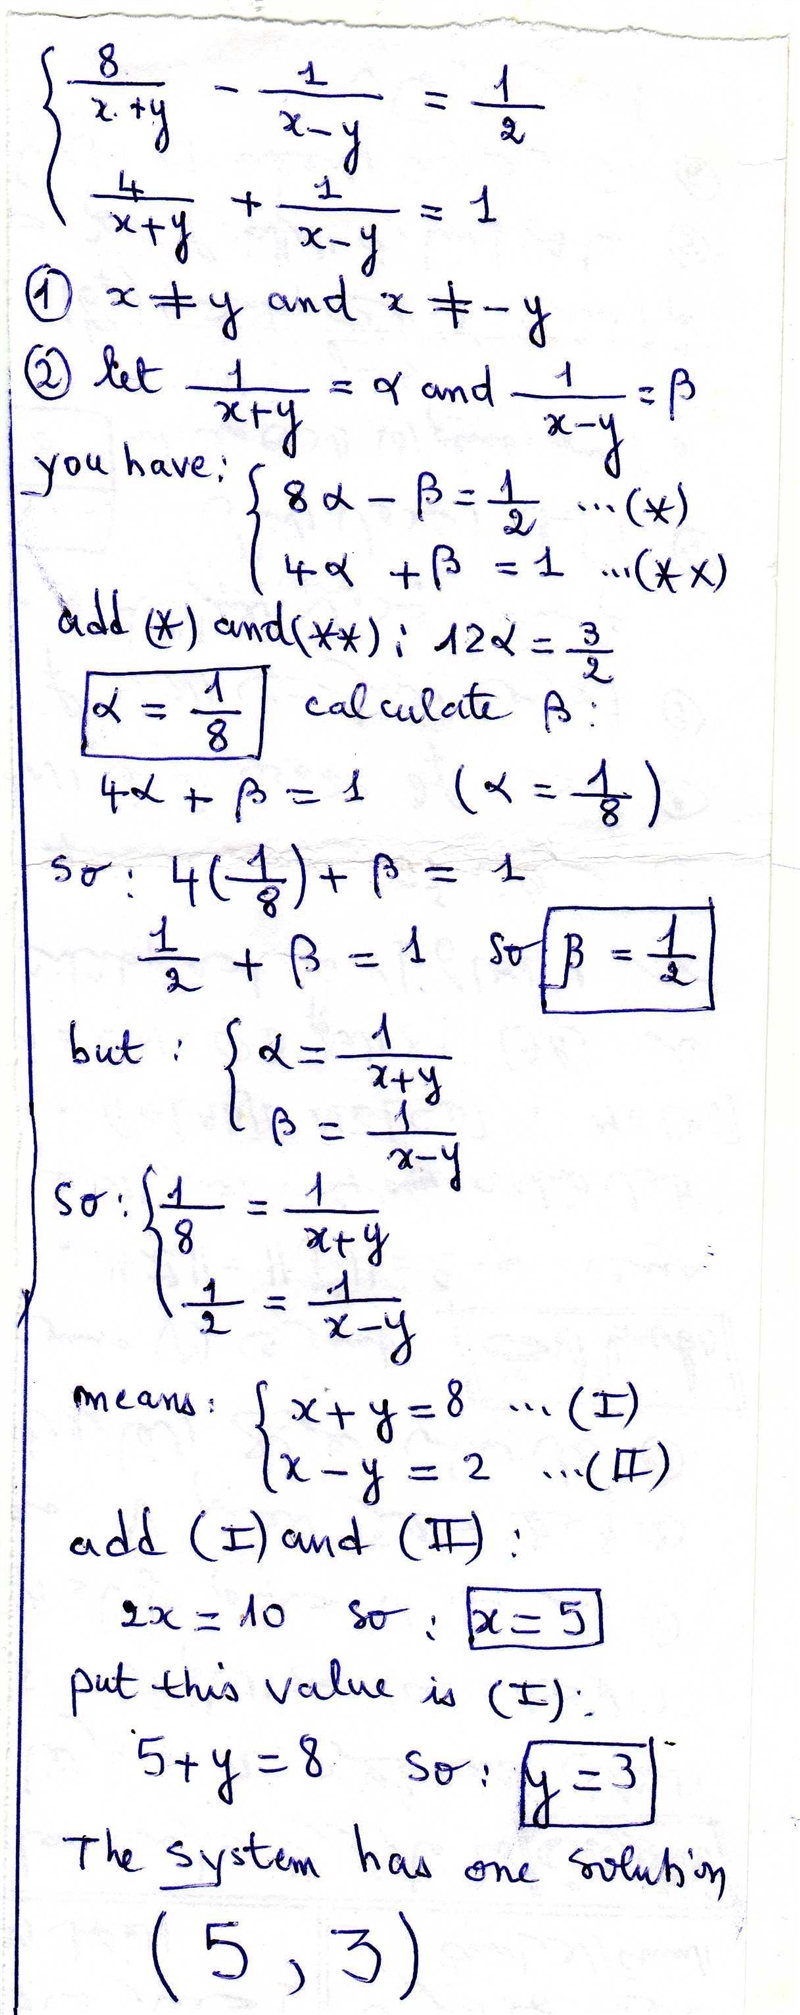 { 8/(x+y) - 1/(x-y) = 1/2
4/(x+y) + 1/(x-y) = 1
① x ≠ y and x ≠ -y
② let 1/(x+y) = α and 1/(x-y) = β
you have: { 8α - β = 1/2 ...(*)
4α + β = 1 ...(**)
add (*) and (**): 12α = 3/2
α = 1/8 calculate β:
4α + β = 1 (α = 1/8)
so: 4(1/8) + β = 1
1/2 + β = 1 so β = 1/2
but: { α = 1/(x+y)
β = 1/(x-y)
so: { 1/8 = 1/(x+y)
1/2 = 1/(x-y)
means: { x+y = 8 ...(I)
x-y = 2 ...(II)
add (I) and (II):
2x = 10 so: x = 5
put this value is (I):
5+y = 8 so: y = 3
The system has one solution
(5, 3)